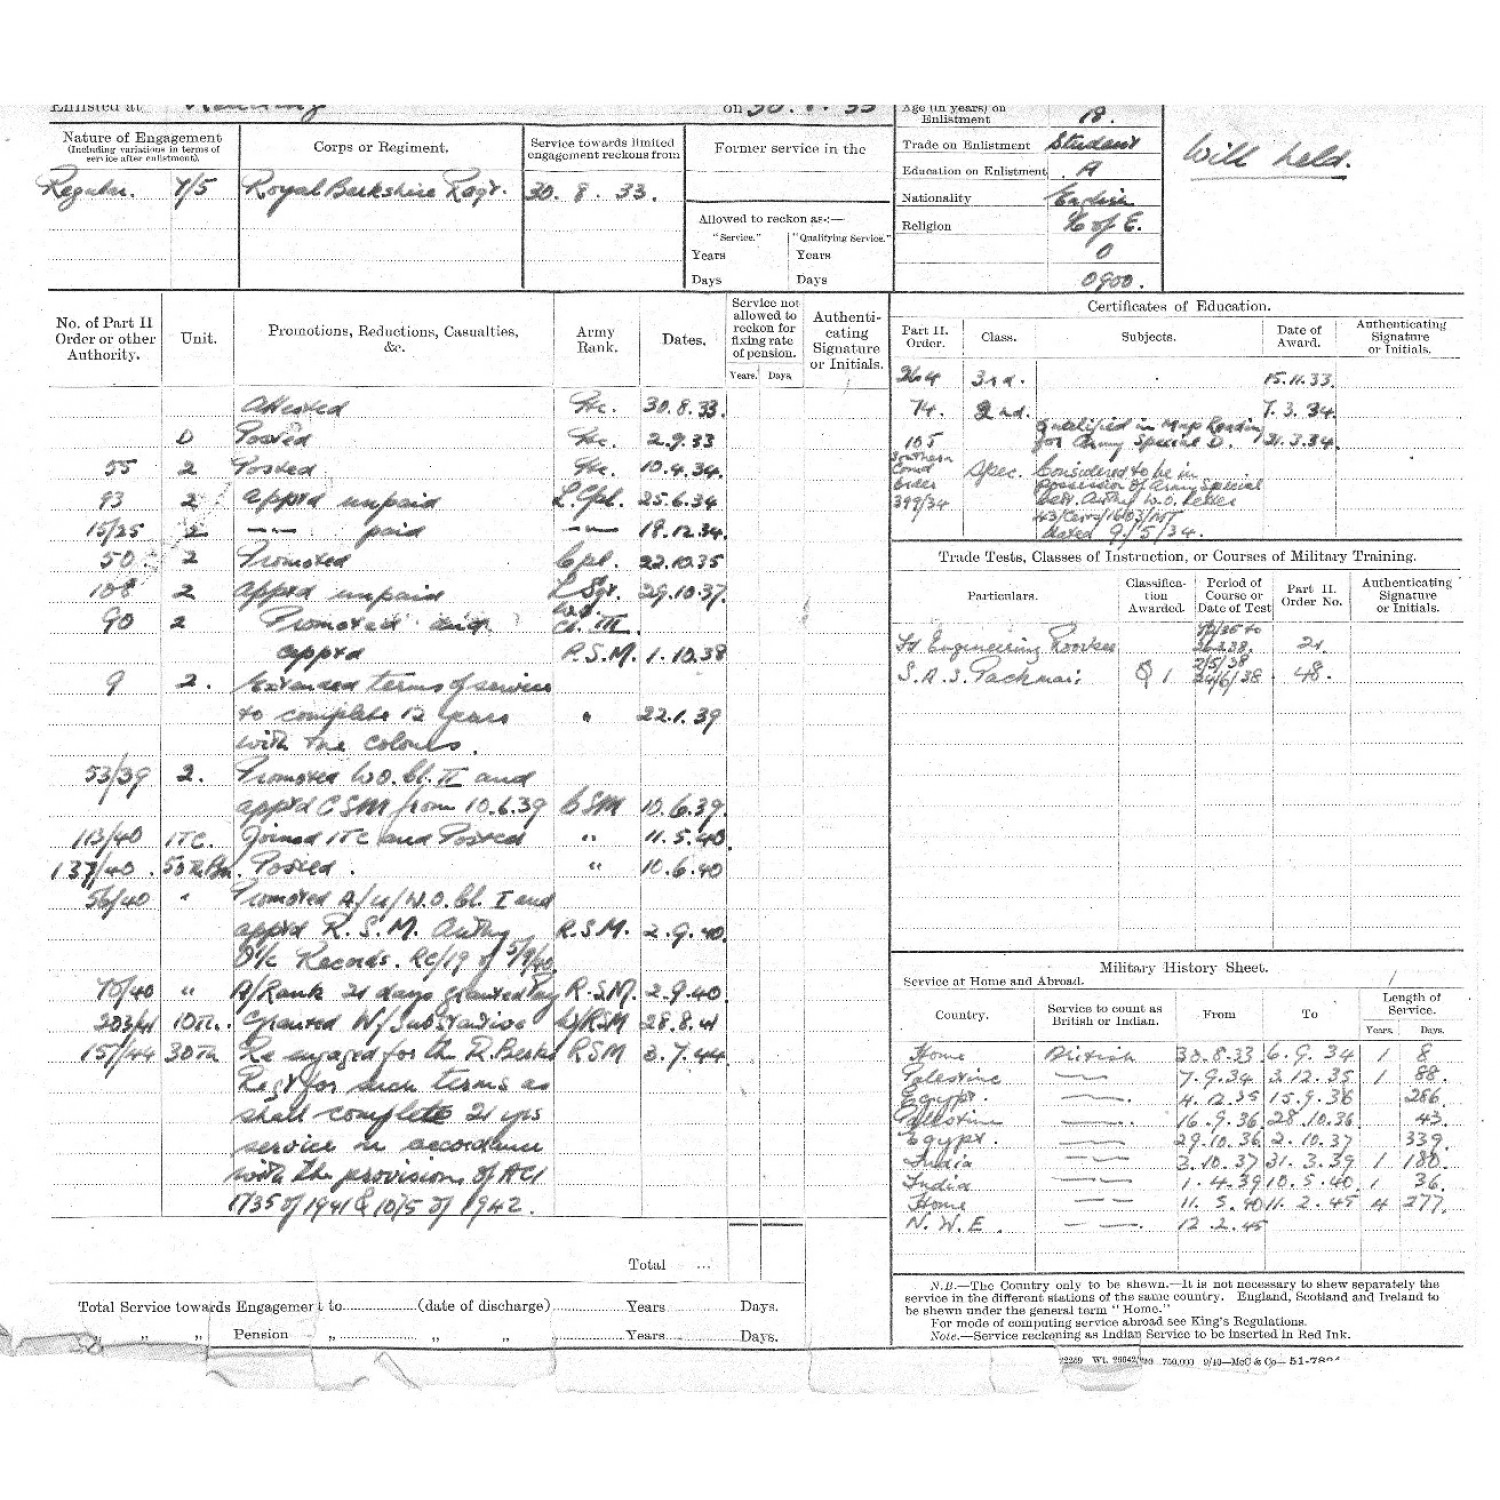 Enlisted at Reading on 30. 8. 33
Nature of Engagement
(Including variations in terms of
service after enlistment).
Corps or Regiment.
Service towards limited
engagement reckons from
Former service in the
Regular. 7/5 Royal Berkshire Regt. 30. 8. 33.
Allowed to reckon as:—
"Service." "Qualifying Service."
Years Years
Days Days
Age (in years) on
Enlistment 18.
Trade on Enlistment Student
Education on Enlistment A
Nationality English
Religion C of E.
0
0900.
Will held.
No. of Part II
Order or other
Authority.
Unit.
Promotions, Reductions, Casualties,
&c.
Army
Rank.
Dates.
Service not
allowed to
reckon for
fixing rate
of pension.
Years. Days.
Authenti-
cating
Signature
or Initials.
Attested Pte. 30.8.33.
D Posted Pte. 2.9.33
55 2 Posted Pte. 10.4.34.
93 2 appxd unpaid L.Cpl. 25.6.34
15/25 2 —— paid —— 19.12.34.
50 2 Promoted Cpl. 22.10.35
108 2 appxd unpaid L.Sgt. 29.10.37.
90 2 Promoted and W.O. Cl. III
appxd R.S.M. 1.10.38
9 2. Extended terms of service
to complete 12 years " 22.1.39
with the colours.
53/39 2. Promoted W.O. Cl. II and
appxd CSM from 10.6.39 CSM 10.6.39.
113/40 ITC. Joined ITC and Posted " 11.5.40.
137/40. 50th Bn. Posted. " 10.6.40
56/40 " Promoted A/U/W.O. Cl. I and
appxd R.S.M. Authy R.S.M. 2.9.40.
O i/c Records. RC/19 of 5/9/40.
70/40 " A/Rank 21 days granted Pay R.S.M. 2.9.40.
203/41 10th. Granted W/Substantive W/RSM 28.8.41
157/44 30th Re engaged for the R. Berks RSM 3.7.44
Regt for such terms as
shall complete 21 yrs
service in accordance
with the provisions of ACI
1735 of 1941 & 1075 of 1942.
Total ...
Total Service towards Engagement to (date of discharge) Years Days.
" " " Pension " " " Years Days.
Certificates of Education.
Part II.
Order.
Class.
Subjects.
Date of
Award.
Authenticating
Signature
or Initials.
264 3rd. 15.11.33.
74. 2nd. 7.3.34.
105 Qualified in Map Reading
for Army Special D. 21.3.34.
Southern
Comd
Order
399/34
Spec. Considered to be in
possession of Army Special
Cert. Authy W.O. Letter
43/Certs/1603/MT
dated 9/5/34.
Trade Tests, Classes of Instruction, or Courses of Military Training.
Particulars.
Classifica-
tion
Awarded.
Period of
Course or
Date of Test
Part II.
Order No.
Authenticating
Signature
or Initials.
Fd Engineering Roorkee 26.2.38. 21.
S.A.S. Pachmari Q 1 2/5/38 24/6/38 48.
Military History Sheet.
Service at Home and Abroad.
Country.
Service to count as
British or Indian.
From
To
Length of
Service.
Years. Days.
Home British 30.8.33 6.9.34 1 8
Palestine —— 7.9.34 3.12.35 1 88.
Egypt. —— 4.12.35 15.9.36 286
Palestine —— 16.9.36 28.10.36 43.
Egypt. —— 29.10.36 2.10.37 339.
India —— 3.10.37 31.3.39 1 180.
India —— 1.4.39 10.5.40 1 36.
Home —— 11.5.40 11.2.45 4 277.
N.W.E. —— 12.2.45
N.B.—The Country only to be shewn.—It is not necessary to shew separately the
service in the different stations of the same country. England, Scotland and Ireland to
be shewn under the general term "Home."
For mode of computing service abroad see King's Regulations.
Note.—Service reckoning as Indian Service to be inserted in Red Ink.
700,000 9/40—McC & Co— 51-